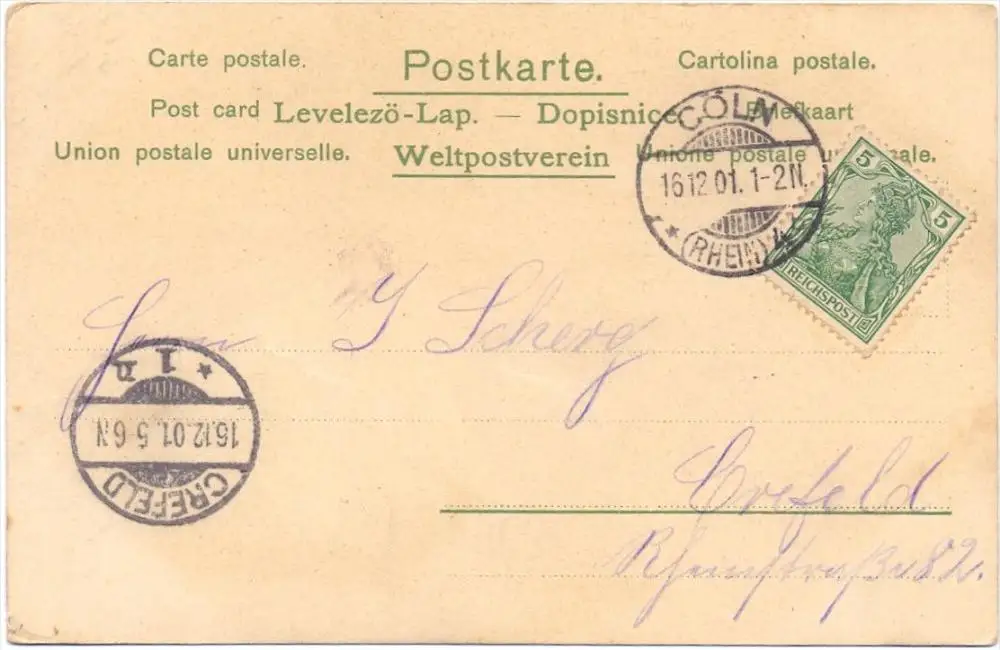 Carte postale. Postkarte. Cartolina postale.
Post card Levelező-Lap. — Dopisnice Briefkaart
Union postale universelle. Weltpostverein Unione postale universale.
CÖLN
16 12 01. 1-2N.
* (RHEIN) 4
5 5
REICHSPOST
Herrn J Scherg
* 1 n
16.12.01. 5-6N
CREFELD
Crefeld
Rheinstraße 82.